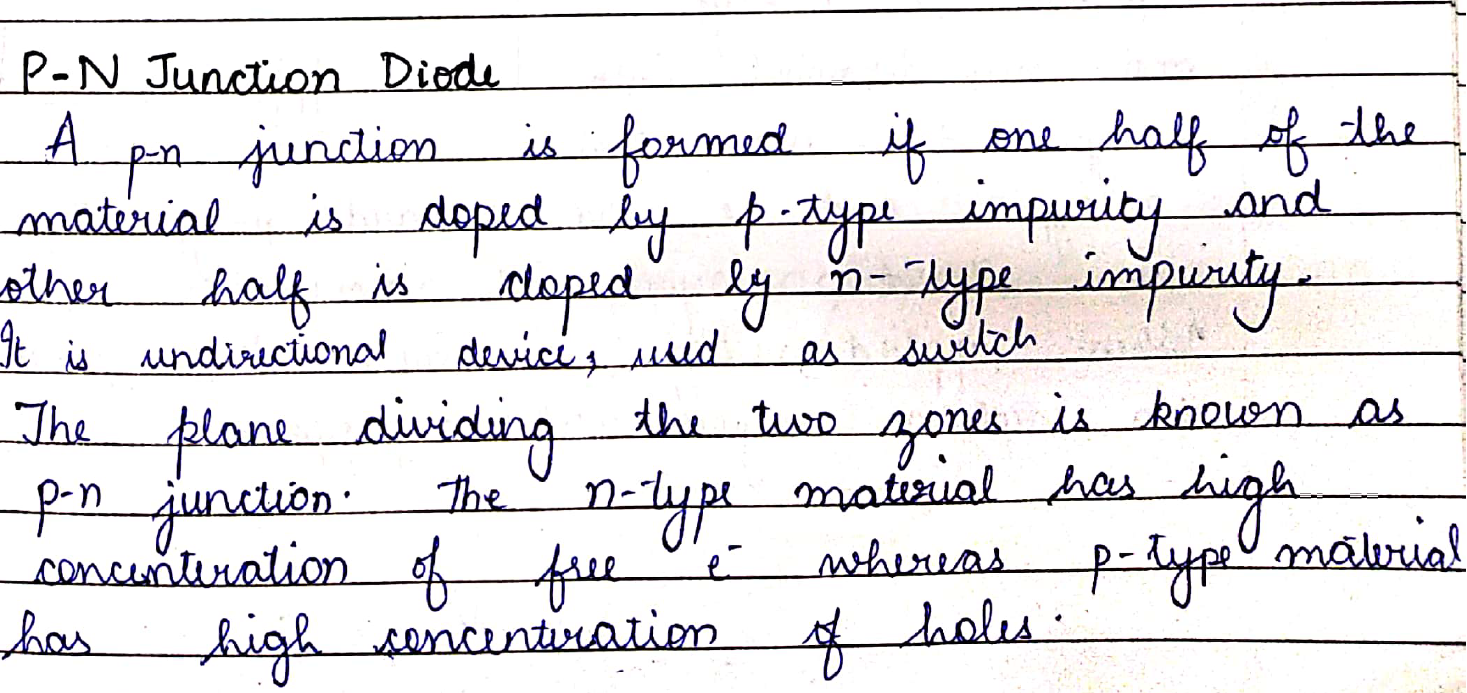 P-N Junction Diode
A p-n junction is formed if one half of the
material is doped by p-type impurity and
other half is doped by n-type impurity.
It is undirectional device, used as switch
The plane dividing the two zones is known as
p-n junction. The n-type material has high
concenteration of free e⁻ whereas p-type material
has high concenteration of holes.